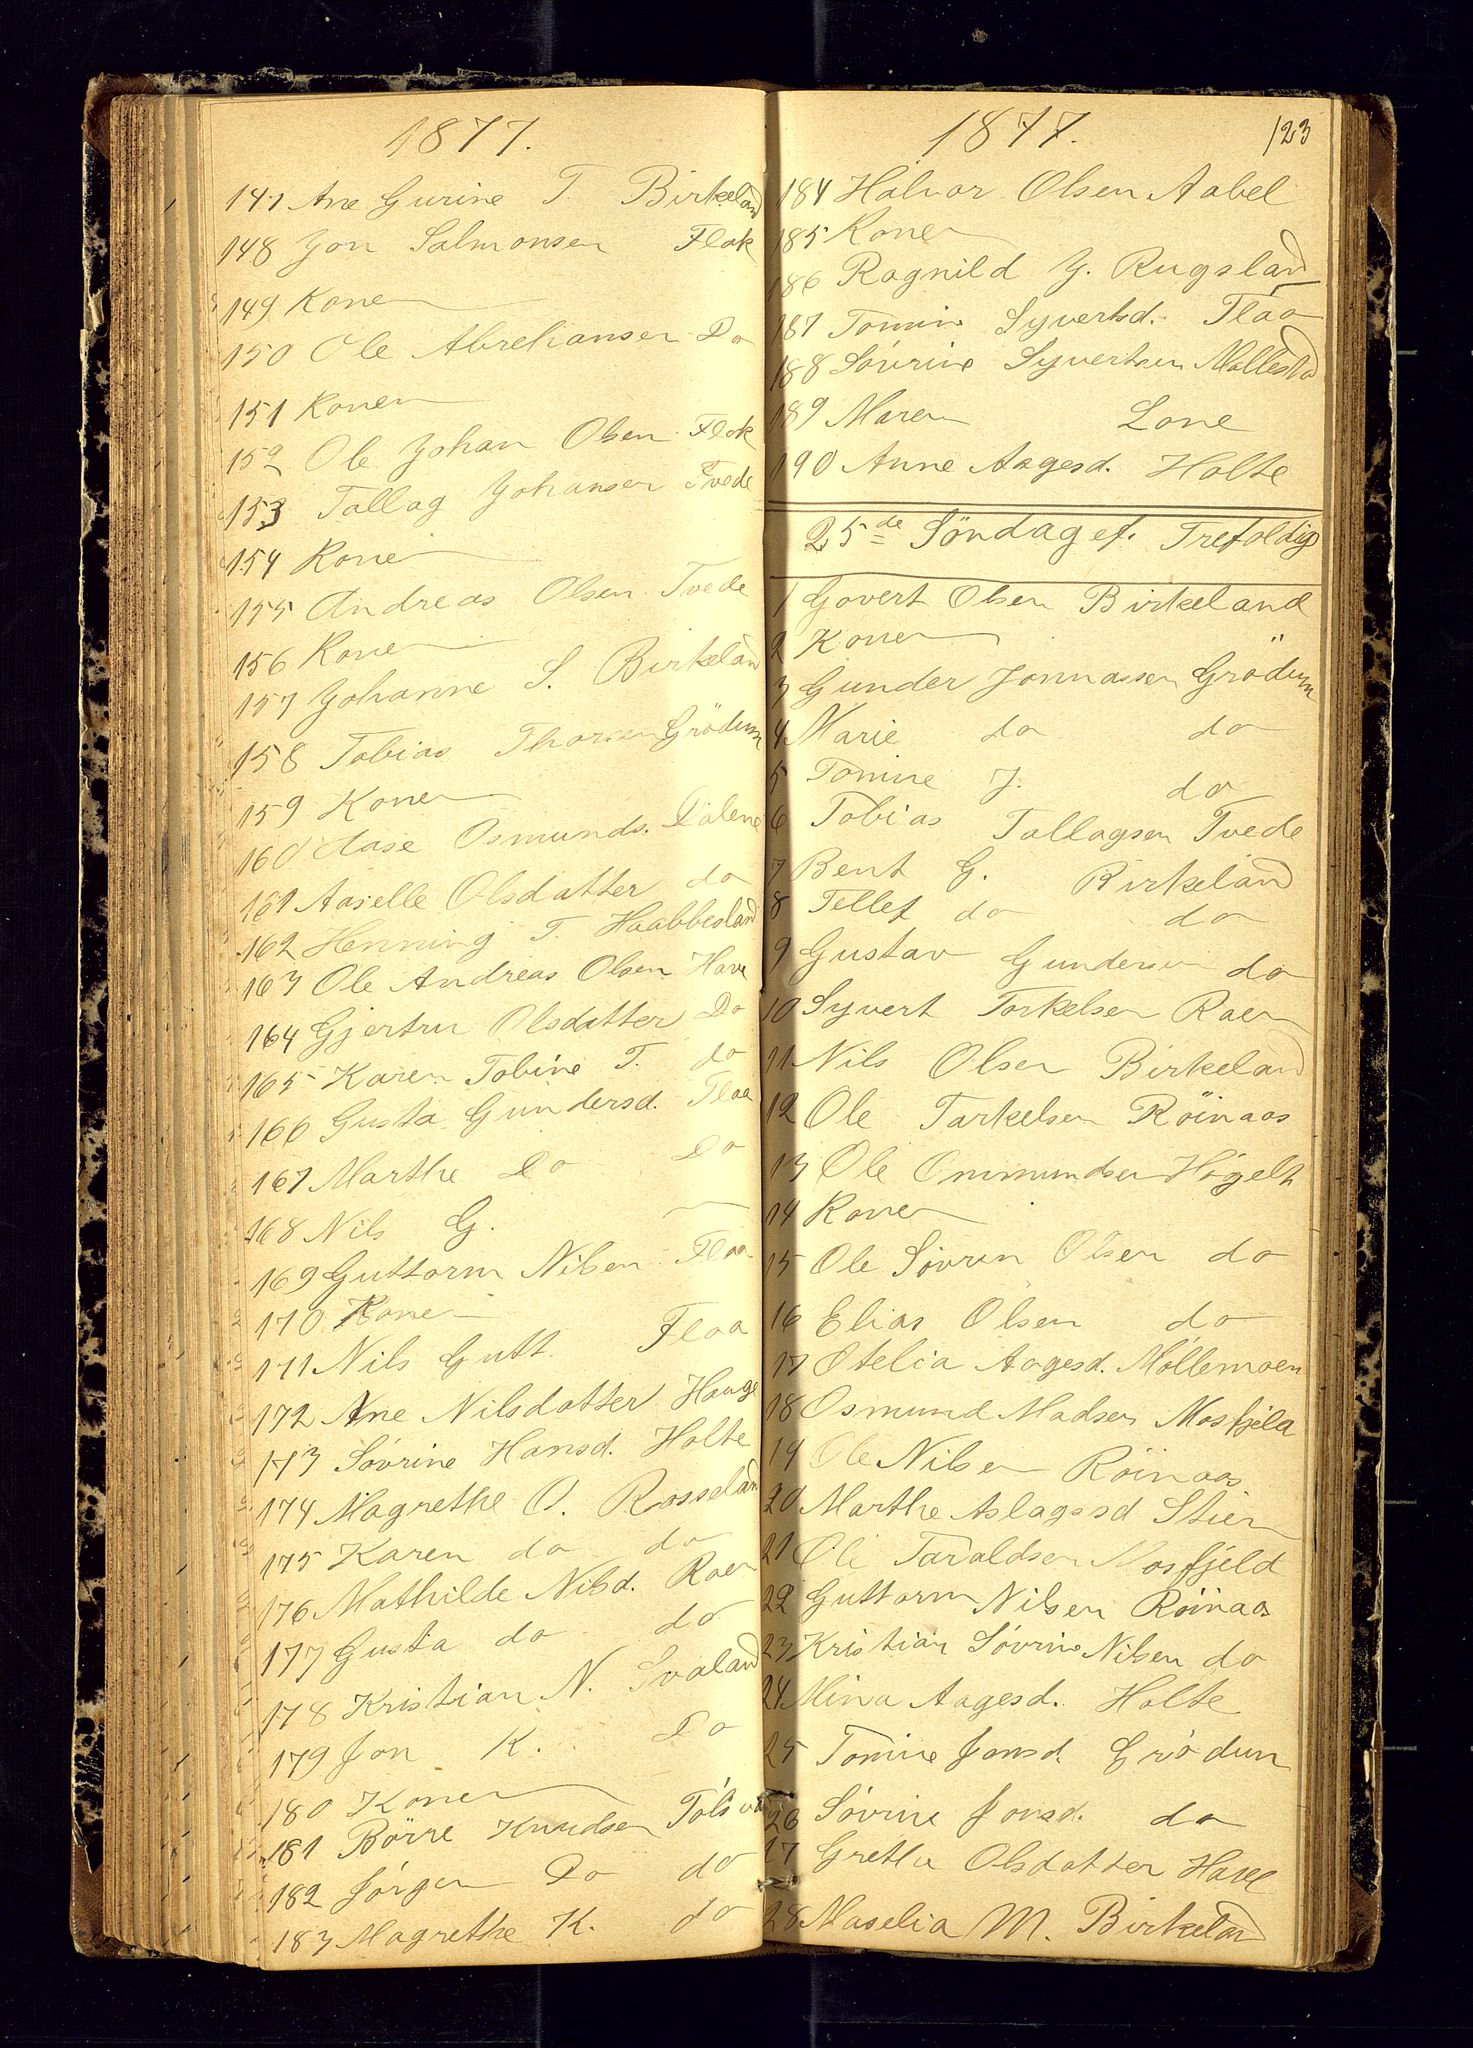 1877.
147 Ane Gurine T. Birkeland
148 Jon Salmonsen Flak
149 Konen
150 Ole Abrehansen Do
151 Konen
152 Ole Johan Olsen Flak
153 Tallag Johansen Tvede
154 Konen
155 Andreas Olsen Tvede
156 Konen
157 Johanne S. Birkeland
158 Tobias Thorsen Grödum
159 Konen
160 Aase Osmunds. Dalene
161 Aaselle Olsdatter do
162 Henning T. Haabbesland
163 Ole Andreas Olsen Have
164 Gjertru Olsdatter Do
165 Karen Tobine T. do
166 Gusta Gundersd. Flaa
167 Marthe Do Do
168 Nils G.
169 Guttorm Nilsen Flaa
170 Konen
171 Nils Gutt. Flaa
172 Ane Nilsdatter Hauge
173 Sövrine Hansd. Holte
174 Magrethe O. Rosseland
175 Karen do do
176 Mathilde Nilsd. Roen
177 Gusta do do
178 Kristian N. Svaland
179 Jon K. Do
180 Konen
181 Börre Knudsen
182 Jörgen Do do
183 Magrethe K. do
1877. 123
184 Halvor Olsen Aabel
185 Konen
186 Ragnild J. Rugsland
187 Tomine Syvertsd. Flaa
188 Sövrine Syvertsen Mollestad
189 Maren Lone
190 Anne Aagesd. Holte
25de Söndag ef. Trefoldig
1 Govert Olsen Birkeland
2 Konen "
3 Gunder Jonnassen Grödum
4 Marie do do
5 Tomine J. do
6 Tobias Tallagsen Tvede
7 Bent G. Birkeland
8 Tellef do do
9 Gustav Gundersen do
10 Syvert Torkelsen Roen
11 Nils Olsen Birkeland
12 Ole Tarkelsen Röinaas
13 Ole Ommundsen Högelt
14 Konen
15 Ole Sövrin Olsen do
16 Elias Olsen do
17 Otelia Aagesd. Möllemoen
18 Osmund Madsen Mosfjela
19 Ole Nilsen Röinaas
20 Marthe Aslagsd Stien
21 Ole Taraldsen Mosfjeld
22 Guttorm Nilsen Röinaas
23 Kristian Sövrine Nilsen do
24 Mina Aagesd. Holte
25 Tomine Jonsd. Grödun
26 Sövrine Jonsd. do
27 Grethe Olsdatter Have
28 Maselia M. Birkeland